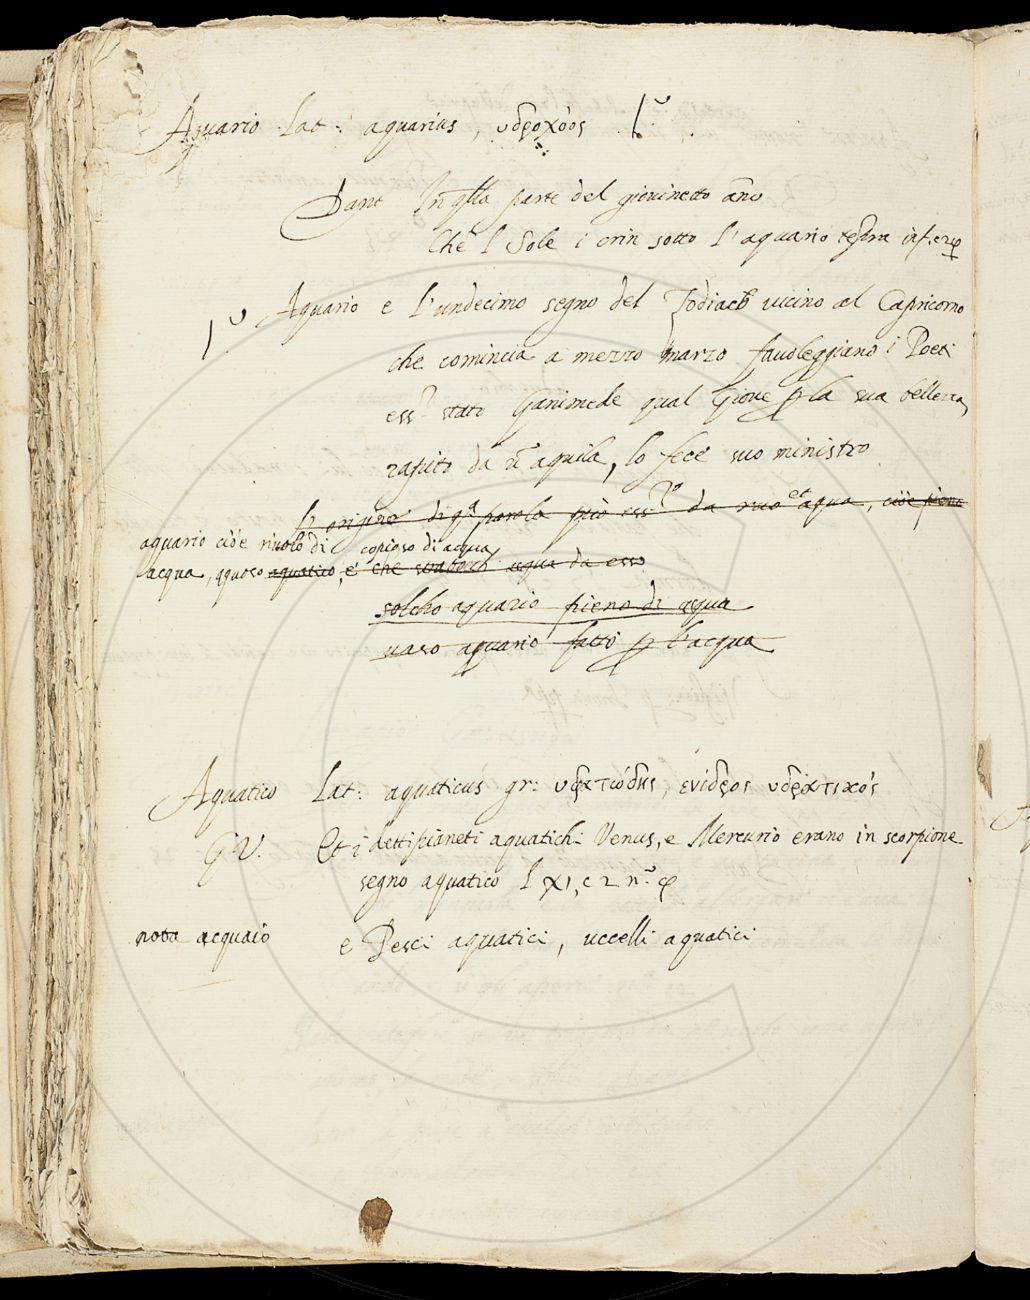 Aquario Lat: aquarius, υδροχόος
Dant In q̃lla parte del giouinetto año
Che l Sole i crin sotto l'aquario tẽpra
Aquario e l'undecimo segno del Zodiaco uicino al Capricorno
che comincia a mezzo marzo fauoleggiano i Poeti
ess.e stato Ganimede qual Gioue p la sua bellezza
rapito da ũ aquila, lo fece suo ministro
L origine di q.a parola può ess.re da riuo et aqua, cioè pieno
aquario cioè riuolo di copioso di acqua
acqua, aquoso aquatico, e che aqua da esso
solcho aquario pieno di aqua
uaso aquario fatto p l'acqua
Aquatico Lat: aquaticus gr: υδρατιώδης, ενίδρος υδρατικός
G.V. Et i detti pianeti aquatichi Venus, e Mercurio erano in scorpione
segno aquatico l XI, c 2 n.o
nota acquaio e Pesci aquatici, uccelli aquatici